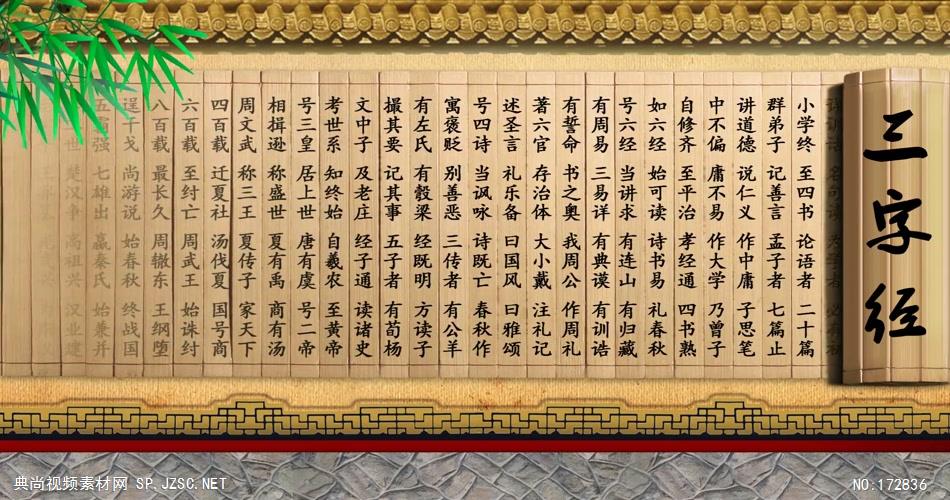 三字经
小学终 至四书 论语者 二十篇
群弟子 记善言 孟子者 七篇止
讲道德 说仁义 作中庸 子思笔
中不偏 庸不易 作大学 乃曾子
自修齐 至平治 孝经通 四书熟
如六经 始可读 诗书易 礼春秋
号六经 当讲求 有连山 有归藏
有周易 三易详 有典谟 有训诰
有誓命 书之奥 我周公 作周礼
著六官 存治体 大小戴 注礼记
述圣言 礼乐备 曰国风 曰雅颂
号四诗 当讽咏 诗既亡 春秋作
寓褒贬 别善恶 三传者 有公羊
有左氏 有榖梁 经既明 方读子
撮其要 记其事 五子者 有荀杨
文中子 及老庄 经子通 读诸史
考世系 知终始 自羲农 至黄帝
号三皇 居上世 唐有虞 号二帝
相揖逊 称盛世 夏有禹 商有汤
周文武 称三王 夏传子 家天下
四百载 迁夏社 汤伐夏 国号商
六百载 至纣亡 周武王 始诛纣
八百载 最长久 周辙东 王纲堕
逞干戈 尚游说 始春秋 终战国
五霸强 七雄出 嬴秦氏 始兼并
楚汉争 高祖兴 汉业建
典尚视频素材网 SP.JZSC.NET
NO:172836